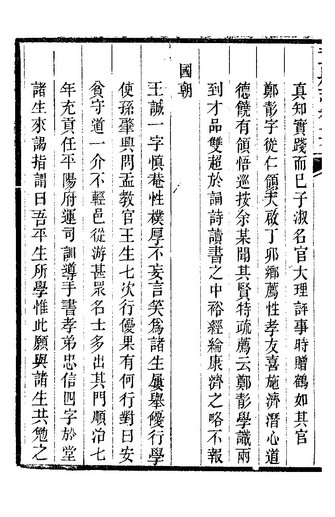 真知實踐而已子淑名官大理評事時贈鶴如其官
鄭彭字從仁領天啟丁卯鄉薦性孝友喜施濟潛心道
德饒有領悟巡按余某聞其賢特疏薦云鄭彭學識兩
到才品雙超於誦詩讀書之中裕經綸康濟之略不報
國朝
王誠一字慎菴性樸厚不妄言笑為諸生屢舉優行學
使孫肇興問盂教官王生七次行優果有何行對曰安
貧守道一介不輕邑從游甚眾名士多出其門順治七
年充貢任平陽府運司訓導手書孝弟忠信四字於堂
諸生來謁指謂曰吾平生所學惟此願與諸生共勉之